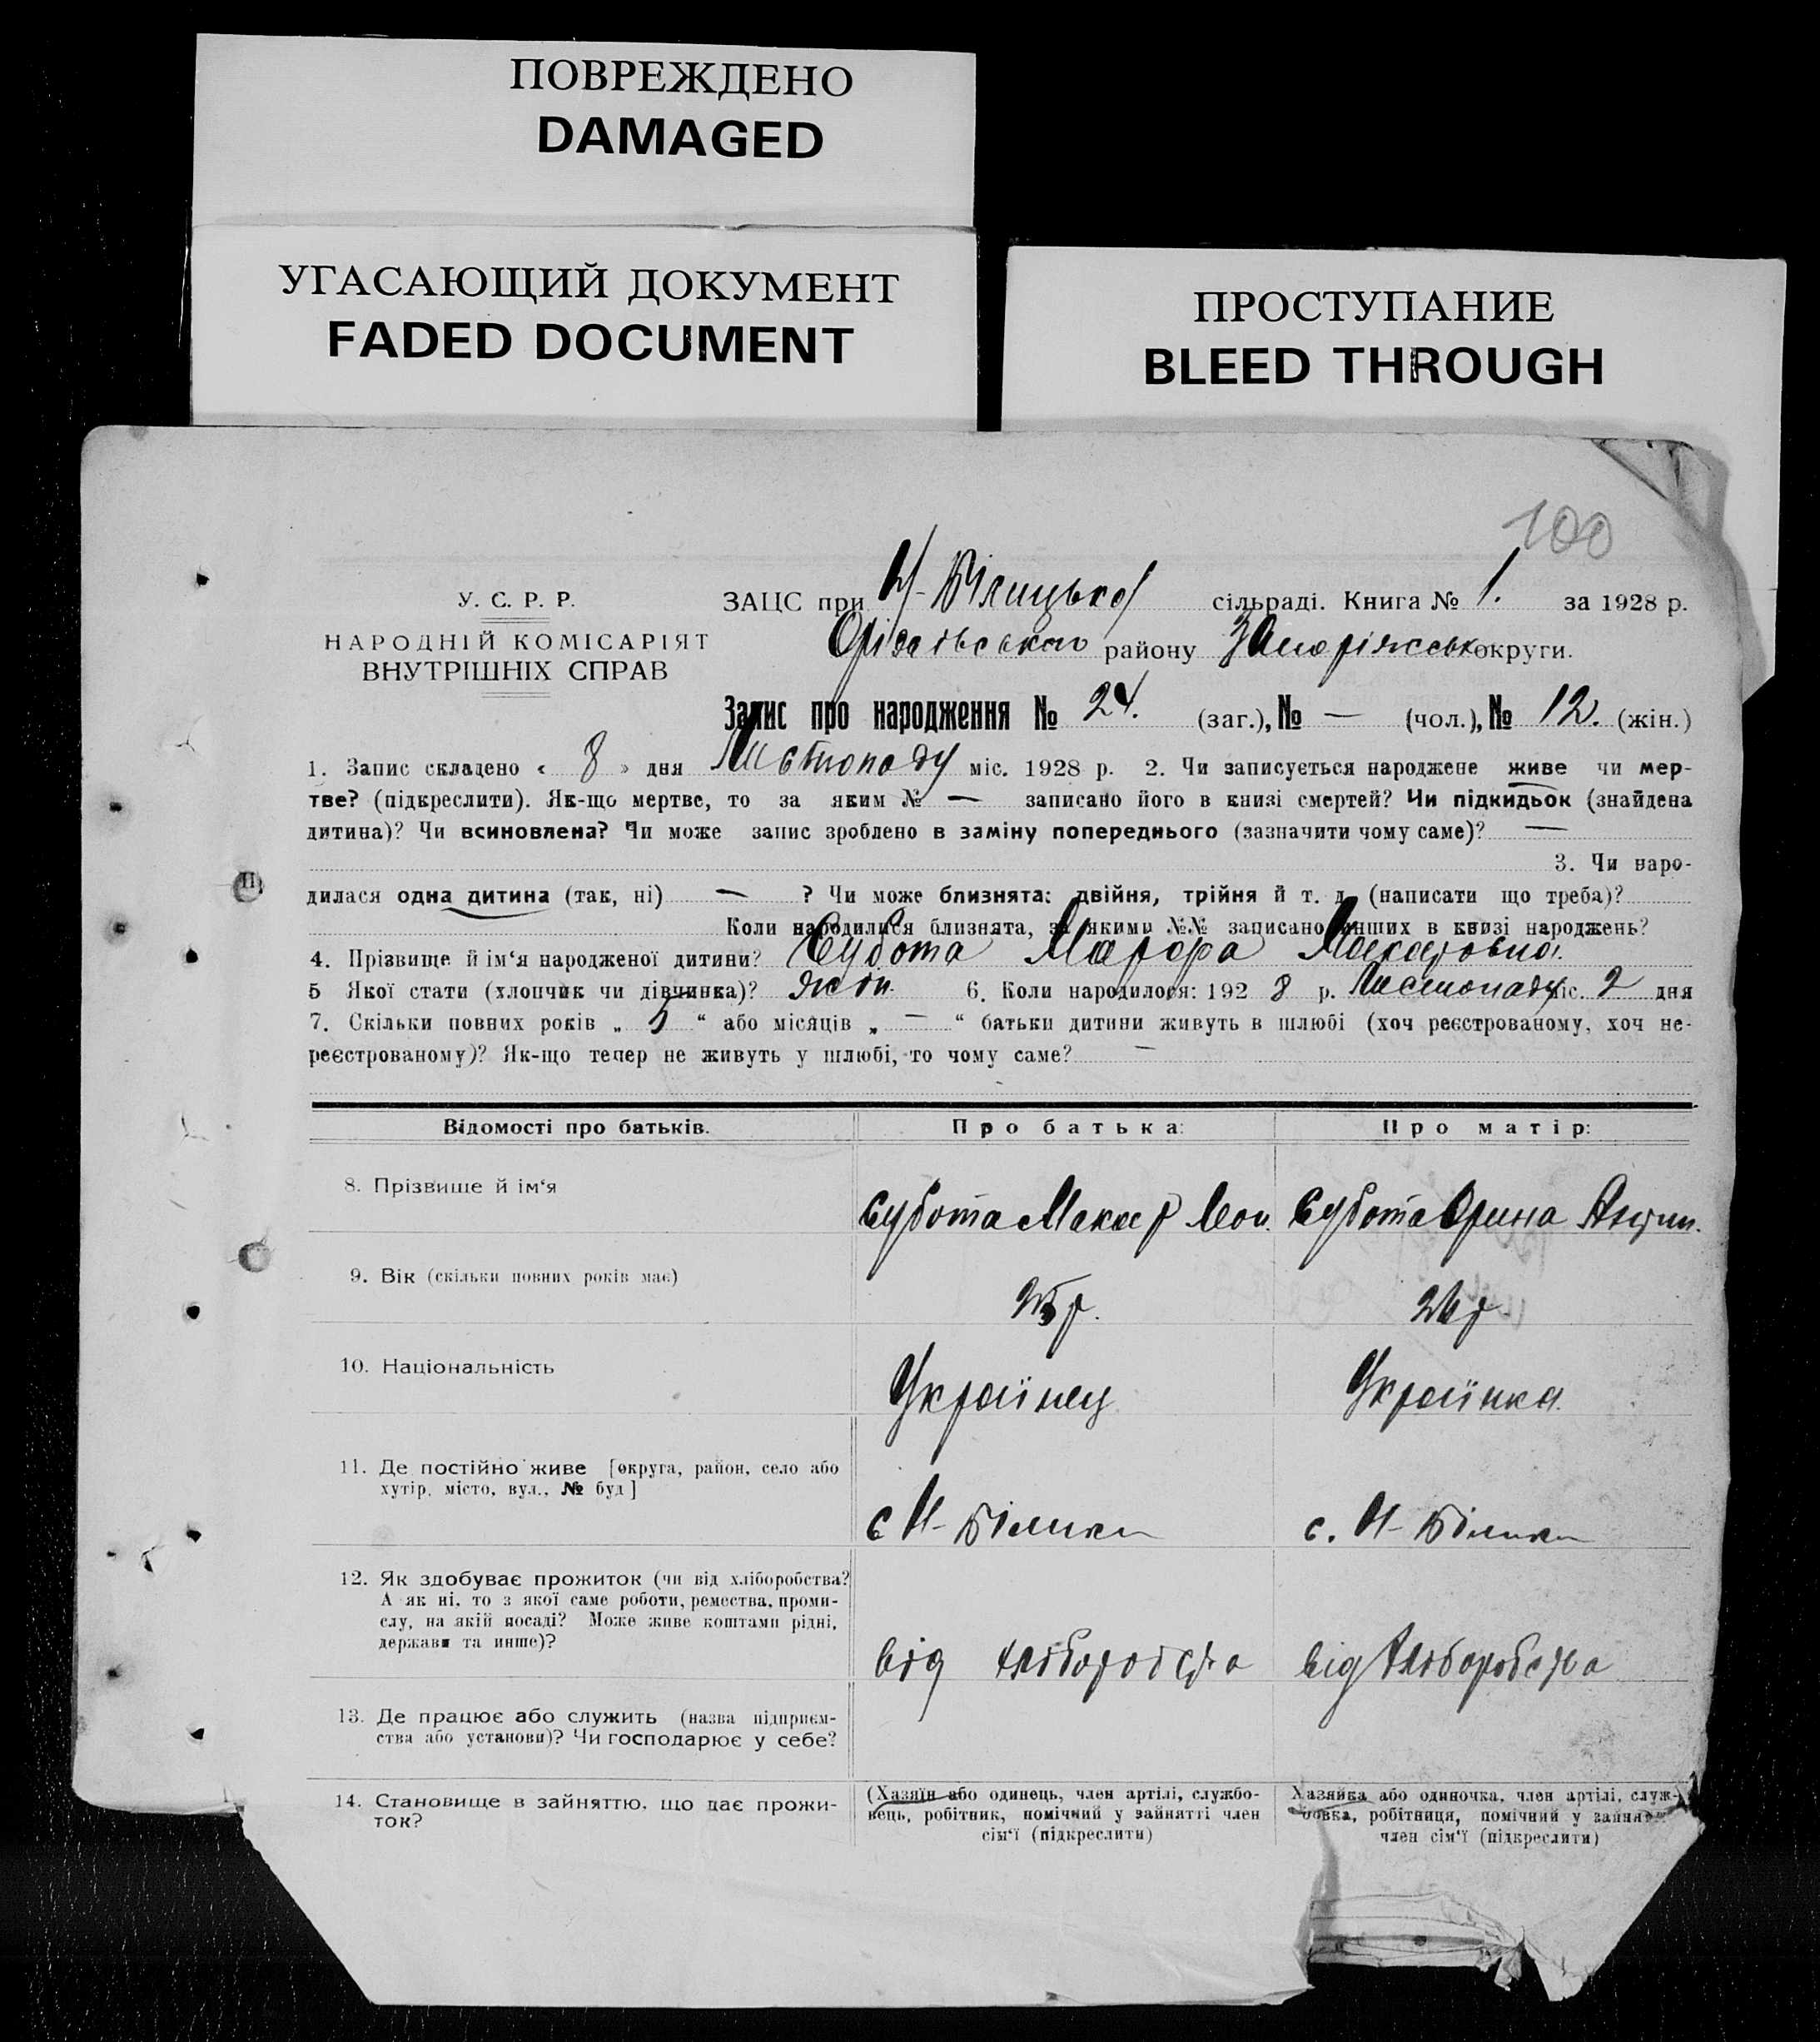 ПОВРЕЖДЕНО
DAMAGED
УГАСАЮЩИЙ ДОКУМЕНТ
FADED DOCUMENT
ПРОСТУПАНИЕ
BLEED THROUGH
100
У. С. Р. Р.
НАРОДНІЙ КОМІСАРІЯТ
ВНУТРІШНІХ СПРАВ
ЗАЦС при Н-Біліцькој сільраді. Книга № 1. за 1928 р.
району округи.
Запис про народження № 24. (заг.), № — (чол.), № 12. (жін.)
1. Запис складено « 8 » дня Листопаду міс. 1928 р. 2. Чи записується народжене живе чи мер-
тве? (підкреслити). Як-що мертве, то за яким № — записано його в книзі смертей? Чи підкидьок (знайдена
дитина)? Чи всиновлена? Чи може запис зроблено в заміну попереднього (зазначити чому саме)? —
3. Чи наро-
дилася одна дитина (так, ні) — ? Чи може близнята: двійня, трійня й т. д. (написати що треба)?
Коли народилися близнята, за якими №№ записано инших в книзі народжень?
4. Прізвище й ім'я народженої дитини? Субота Макаровна.
5 Якої стати (хлопчик чи дівчинка)? жін. 6. Коли народилося: 1928 р. Листопаду міс. 2 дня
7. Скільки повних років „ 5 “ або місяців „ — “ батьки дитини живуть в шлюбі (хоч реєстрованому, хоч не-
реєстрованому)? Як-що тепер не живуть у шлюбі, то чому саме? —
Відомості про батьків. Про батька: Про матір:
8. Прізвище й ім'я Субота Макар Субота Орина
9. Вік (скільки повних років має) 25 р. 26 р.
10. Національність Українец Українка.
11. Де постійно живе [округа, район, село або
хутір, місто, вул., № буд] с Н-Білики с. Н-Білики
12. Як здобуває прожиток (чи від хліборобства?
А як ні, то з якої саме роботи, ремества, проми-
слу, на якій посаді? Може живе коштами рідні,
держави та инше)? від хліборобства від хліборобства
13. Де працює або служить (назва підприєм-
ства або установи)? Чи господарює у себе?
14. Становище в зайняттю, що дає прожи-
ток?
(Хазяїн або одинець, член артілі, службо-
вець, робітник, помічний у зайнятті член
сім'ї (підкреслити)
Хазяйка або одиночка, член артілі, служ-
бовка, робітниця, помічний у зайнятті
член сім'ї (підкреслити)